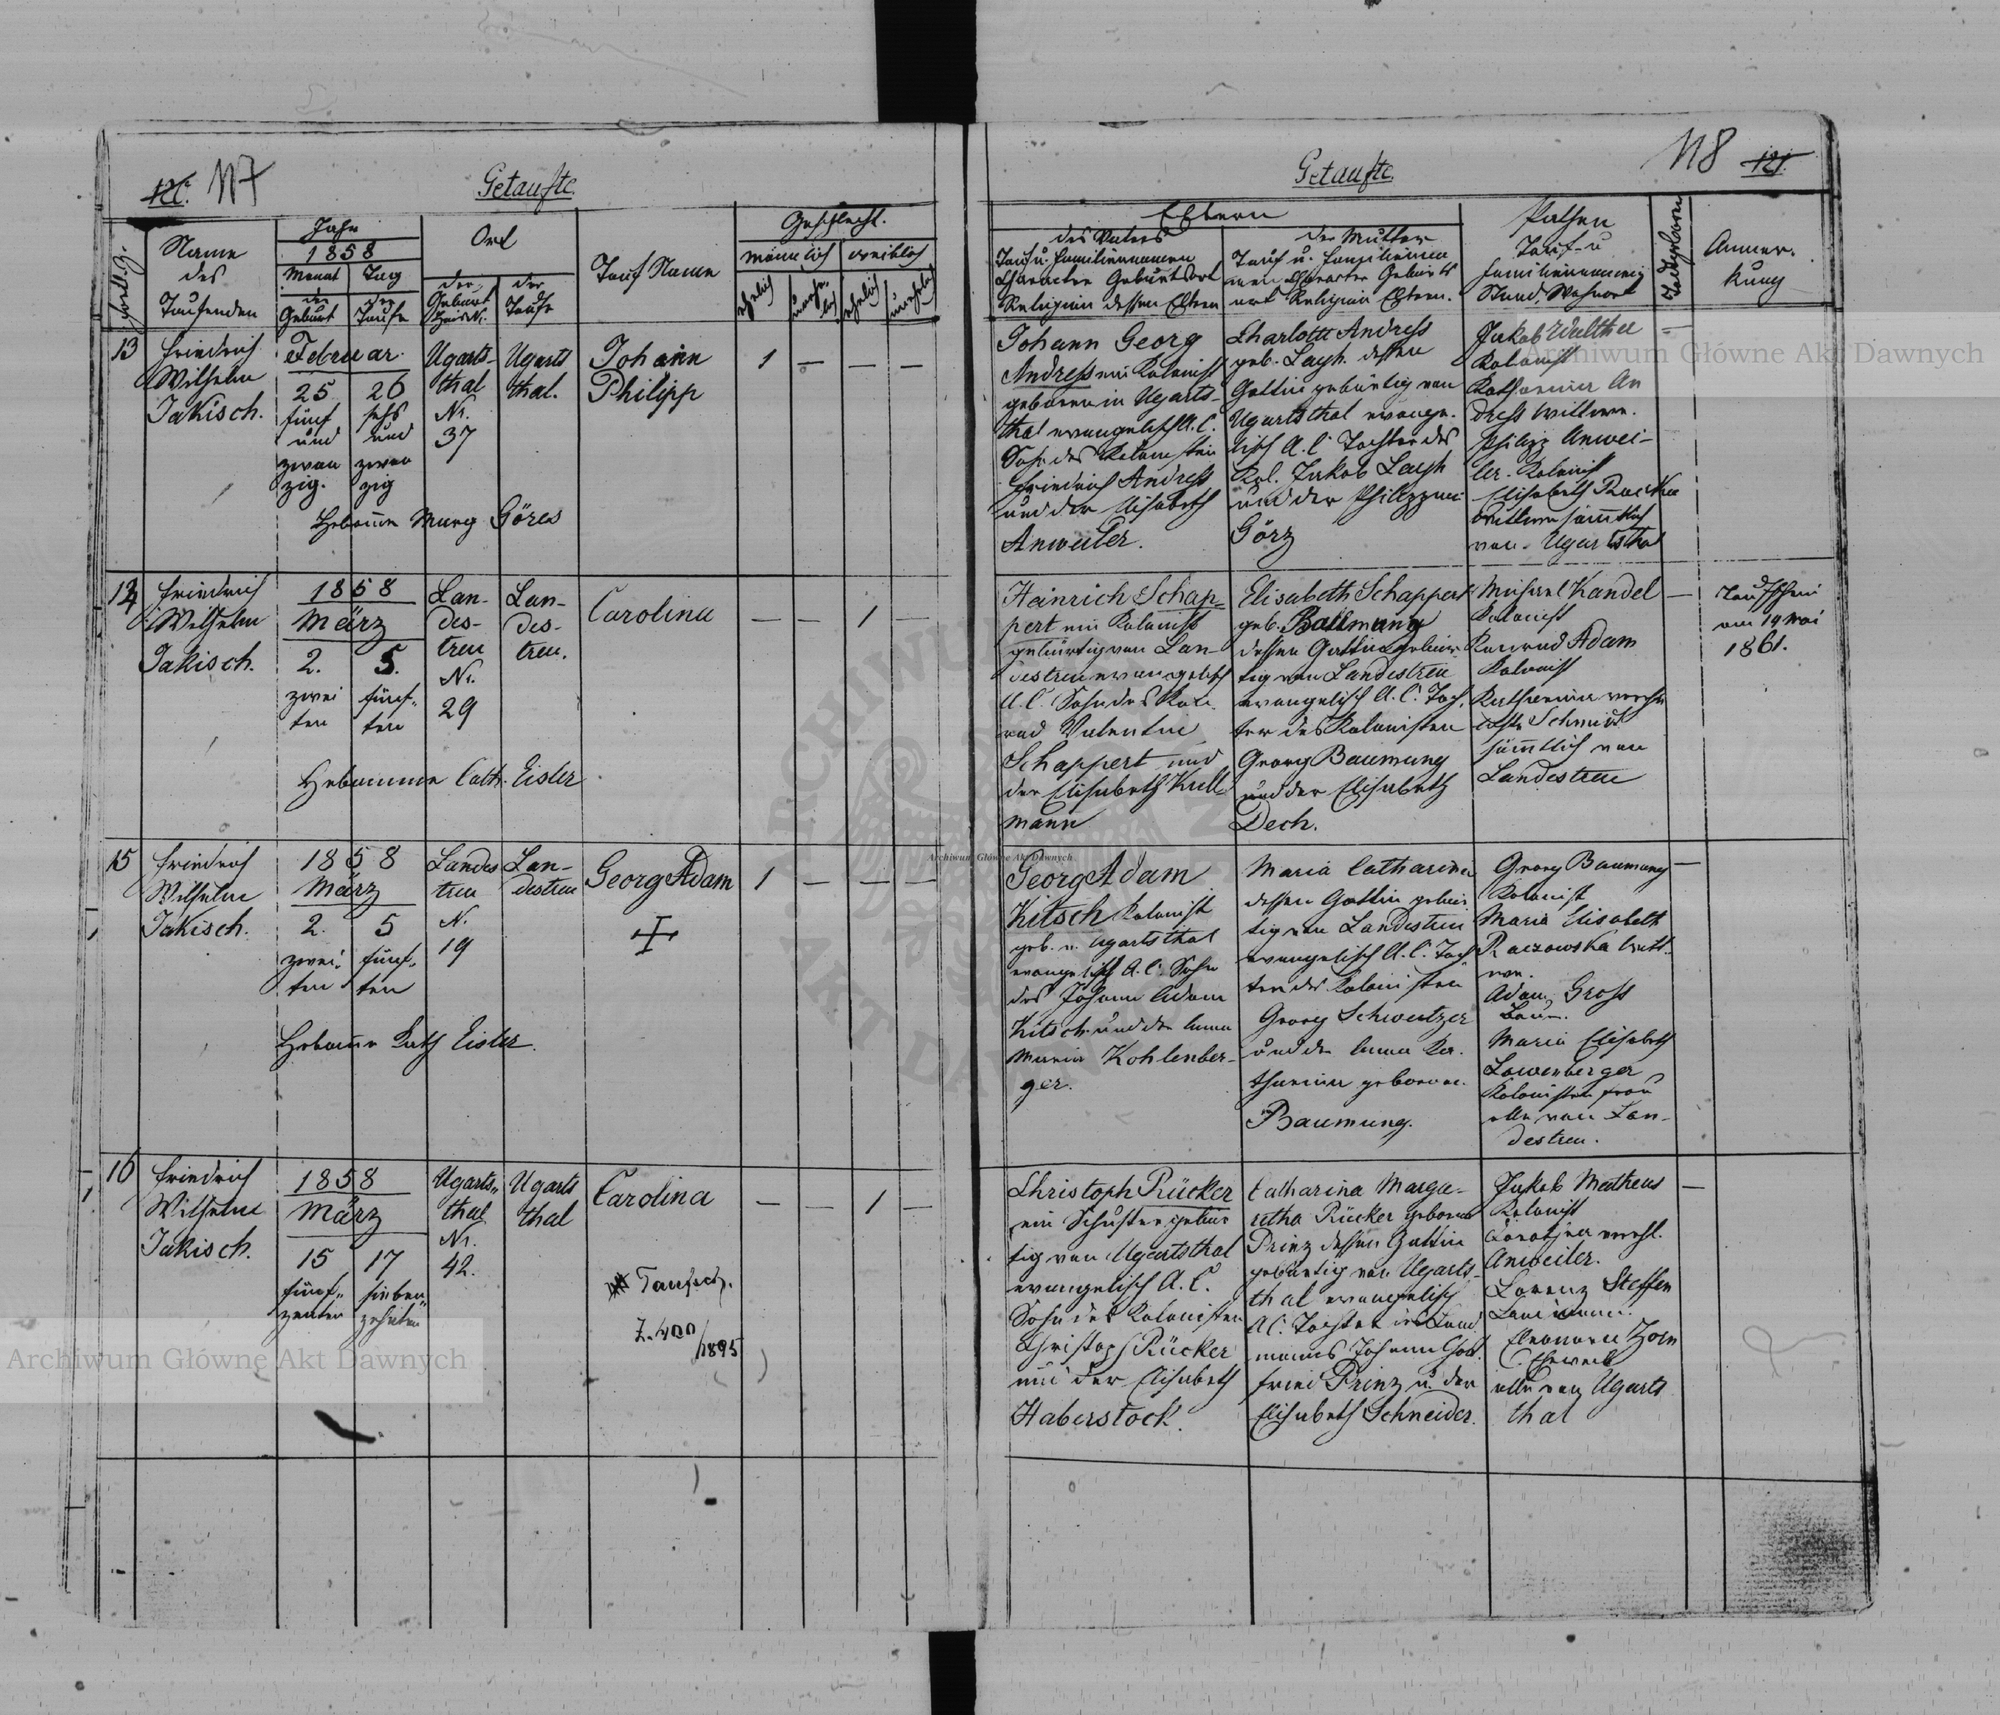 117
Getaufte.
Name
des
Taufenden
Jahr
1858
Monat Tag
der Geburt
der Taufe
Ort
der Geburt Haus Nr.
der Taufe
Tauf Name
Geschlecht.
männlich weiblich
ehelich
unehelich
ehelich
unehelich
13
Friedrich
Wilhelm
Jakisch.
Februar.
25 26
fünf sechs
und und
zwan zwan
zig. zig
Ugarts-
thal
Nr.
37
Ugarts
thal.
Johann
Philipp
1 — — —
Hebamme Marg Göres
14
Friedrich
Wilhelm
Jakisch.
1858
März
2. 5.
zwei fünf-
ten ten
Lan-
des-
treu
Nr.
29
Lan-
des-
treu.
Carolina
— — 1 —
Hebamme Cath. Eisler
15
Friedrich
Wilhelm
Jakisch.
1858
März
2. 5
zwei- fünf-
ten ten
Landes
treu
N.
19
Lan-
destreu
Georg Adam
1 — — —
Hebamme Kath Eisler.
16
Friedrich
Wilhelm
Jakisch.
1858
März
15 17
fünf- sieben-
zenten zehnten
Ugarts-
thal
Nr.
42.
Ugarts
thal
Carolina
— — 1 —
Taufsch.
Z. 400/1895
118 121.
Getaufte.
Eltern
des Vaters
Tauf u. Familiennamen
Character Geburtsort
Religion dessen Eltern
der Mutter
Tauf u. Familienna
men Character Geburts
ort Religion Eltern.
Pathen
Tauf- u
Familiennamen
Stand, Wohnort
Todtgeboren
Anmer-
kung
Johann Georg
Andress ein Kolonist
geboren in Ugarts-
thal evangelisch A. C.
Sohn des Kolonisten
Friedrich Andress
und der Elisabeth
Anweiler.
Charlotte Andress
geb. Laysh dessen
Gattin gebürtig von
Ugartsthal evange-
lisch A. C. Tochter des
Kol. Jakob Laysh
und der Philippine
Görz
Jakob Walther
Kolonist
Katharina An
dress Wittwe.
Philipp Anwei-
ler. Kolonist
Elisabeth
Wittwe sämmtlich
von Ugartsthal
Heinrich Schap-
pert ein Kolonist
gebürtig von Lan-
destreu evangelisch
A. C. Sohn des Kon-
rad Valentin
Schappert und
der Elisabeth Kull-
mann
Elisabeth Schappert
geb. Baumung
dessen Gattin gebür-
tig von Landestreu
evangelisch A. C. Toch-
ter des Kolonisten
Georg Baumung
und der Elisabeth
Dech.
Michael Kandel
Kolonist
Konrad Adam
Kolonist
Katharina
Schmidt
sämmtlich von
Landestreu
—
Taufschein
am 19 Mai
1861.
Georg Adam
Kitsch Kolonist
geb. v. Ugartsthal
evangelisch A. C. Sohn
des Johann Adam
Kitsch und der Anna
Maria Kohlenber-
ger.
Maria Catharina
dessen Gattin gebür
tig von Landestreu
evangelisch A. C. Toch
ter des Kolonisten
Georg Schweitzer
und der Anna Ka-
tharina geborene
Baumung.
Georg Baumung
Kolonist
Maria Elisabeth
Raczowska Witt-
we.
Adam Gross
Maria Elisabeth
Lowenberger
Kolonisten Frau
alle von Lan-
destreu.
—
Christoph Rücker
ein Schuster gebür
tig von Ugartsthal
evangelisch A. C.
Sohn des Kolonisten
Christoph Rücker
und der Elisabeth
Haberstock.
Catharina Marga-
retha Rücker geborene
Prinz dessen Gattin
gebürtig von Ugarts-
thal evangelisch
A C. Tochter des Land
manns Johann Gott-
fried Prinz u. der
Elisabeth Schneider.
Jakob Matheus
Kolonist
verehl.
Anweiler.
Lorenz Steffen
Landmann.
Eleonora Zorn
Eheweib
alle von Ugarts
thal
—
Archiwum Główne Akt Dawnych
Archiwum Główne Akt Dawnych
Archiwum Główne Akt Dawnych